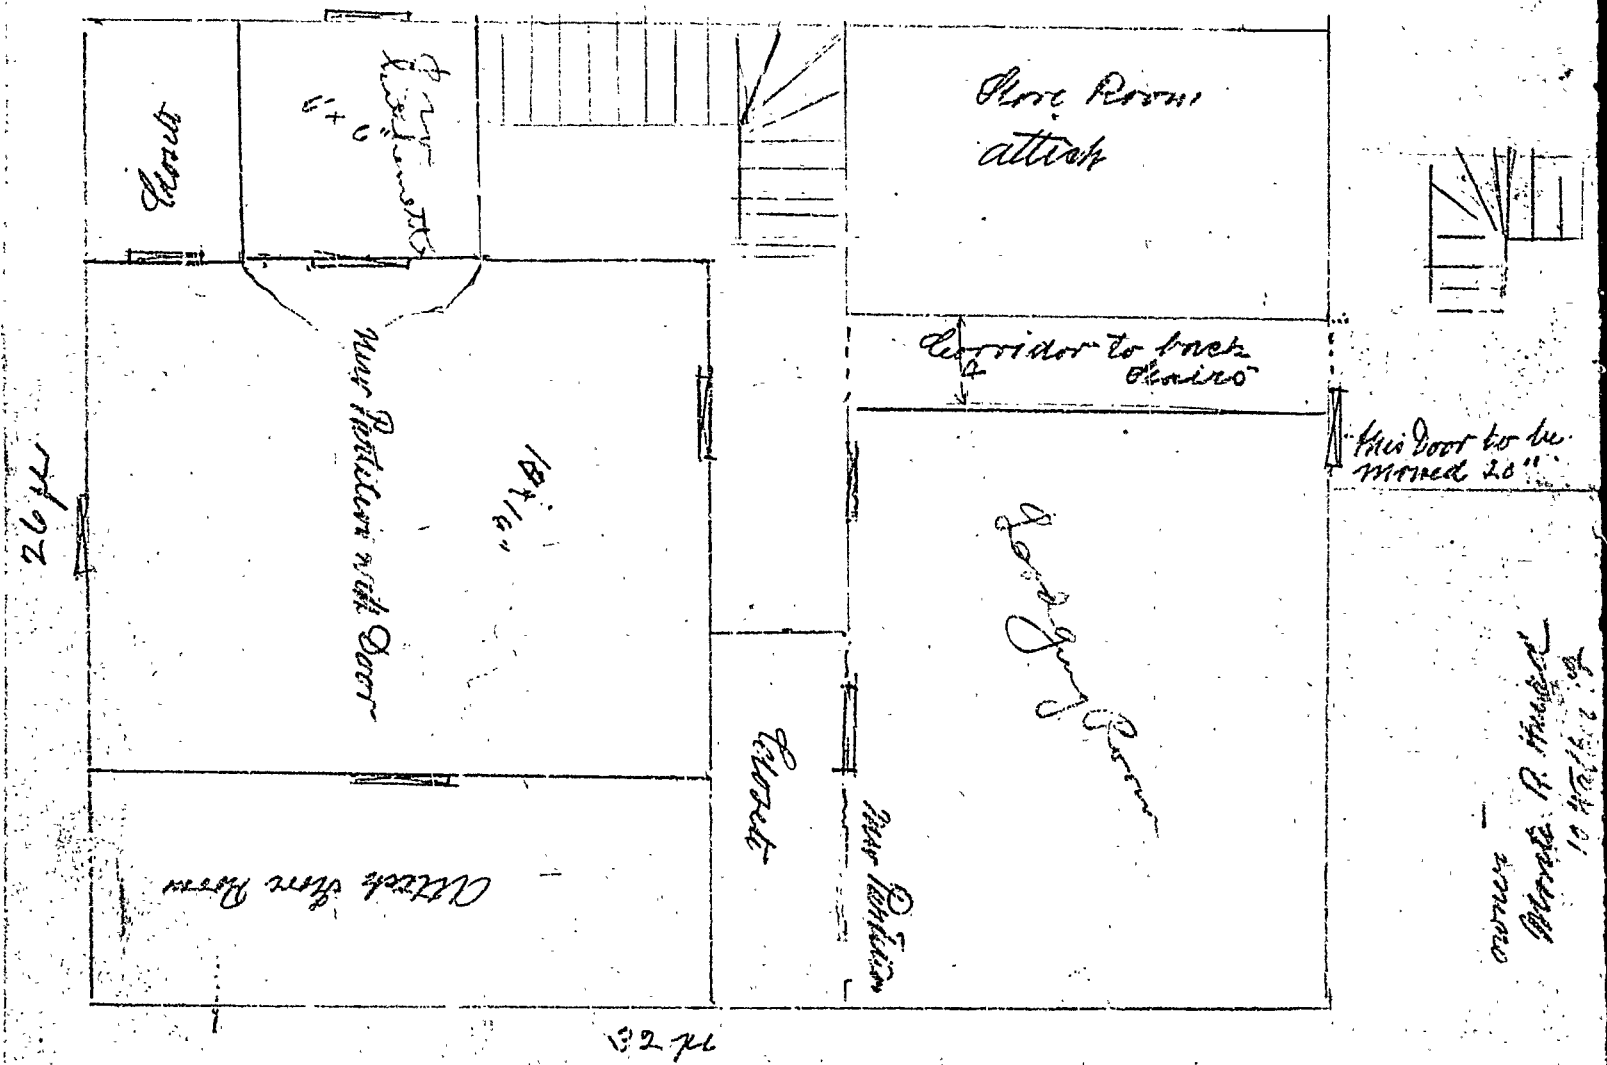 Store Room
attick
Closets
6 + 6"
Corridor to back
stairs
this Door to be
moved 20"
26 ft
New Partition with Door
18 + 16"
Lodging Room
Closets
New Partition
Attick Store Room
32 ft
owner